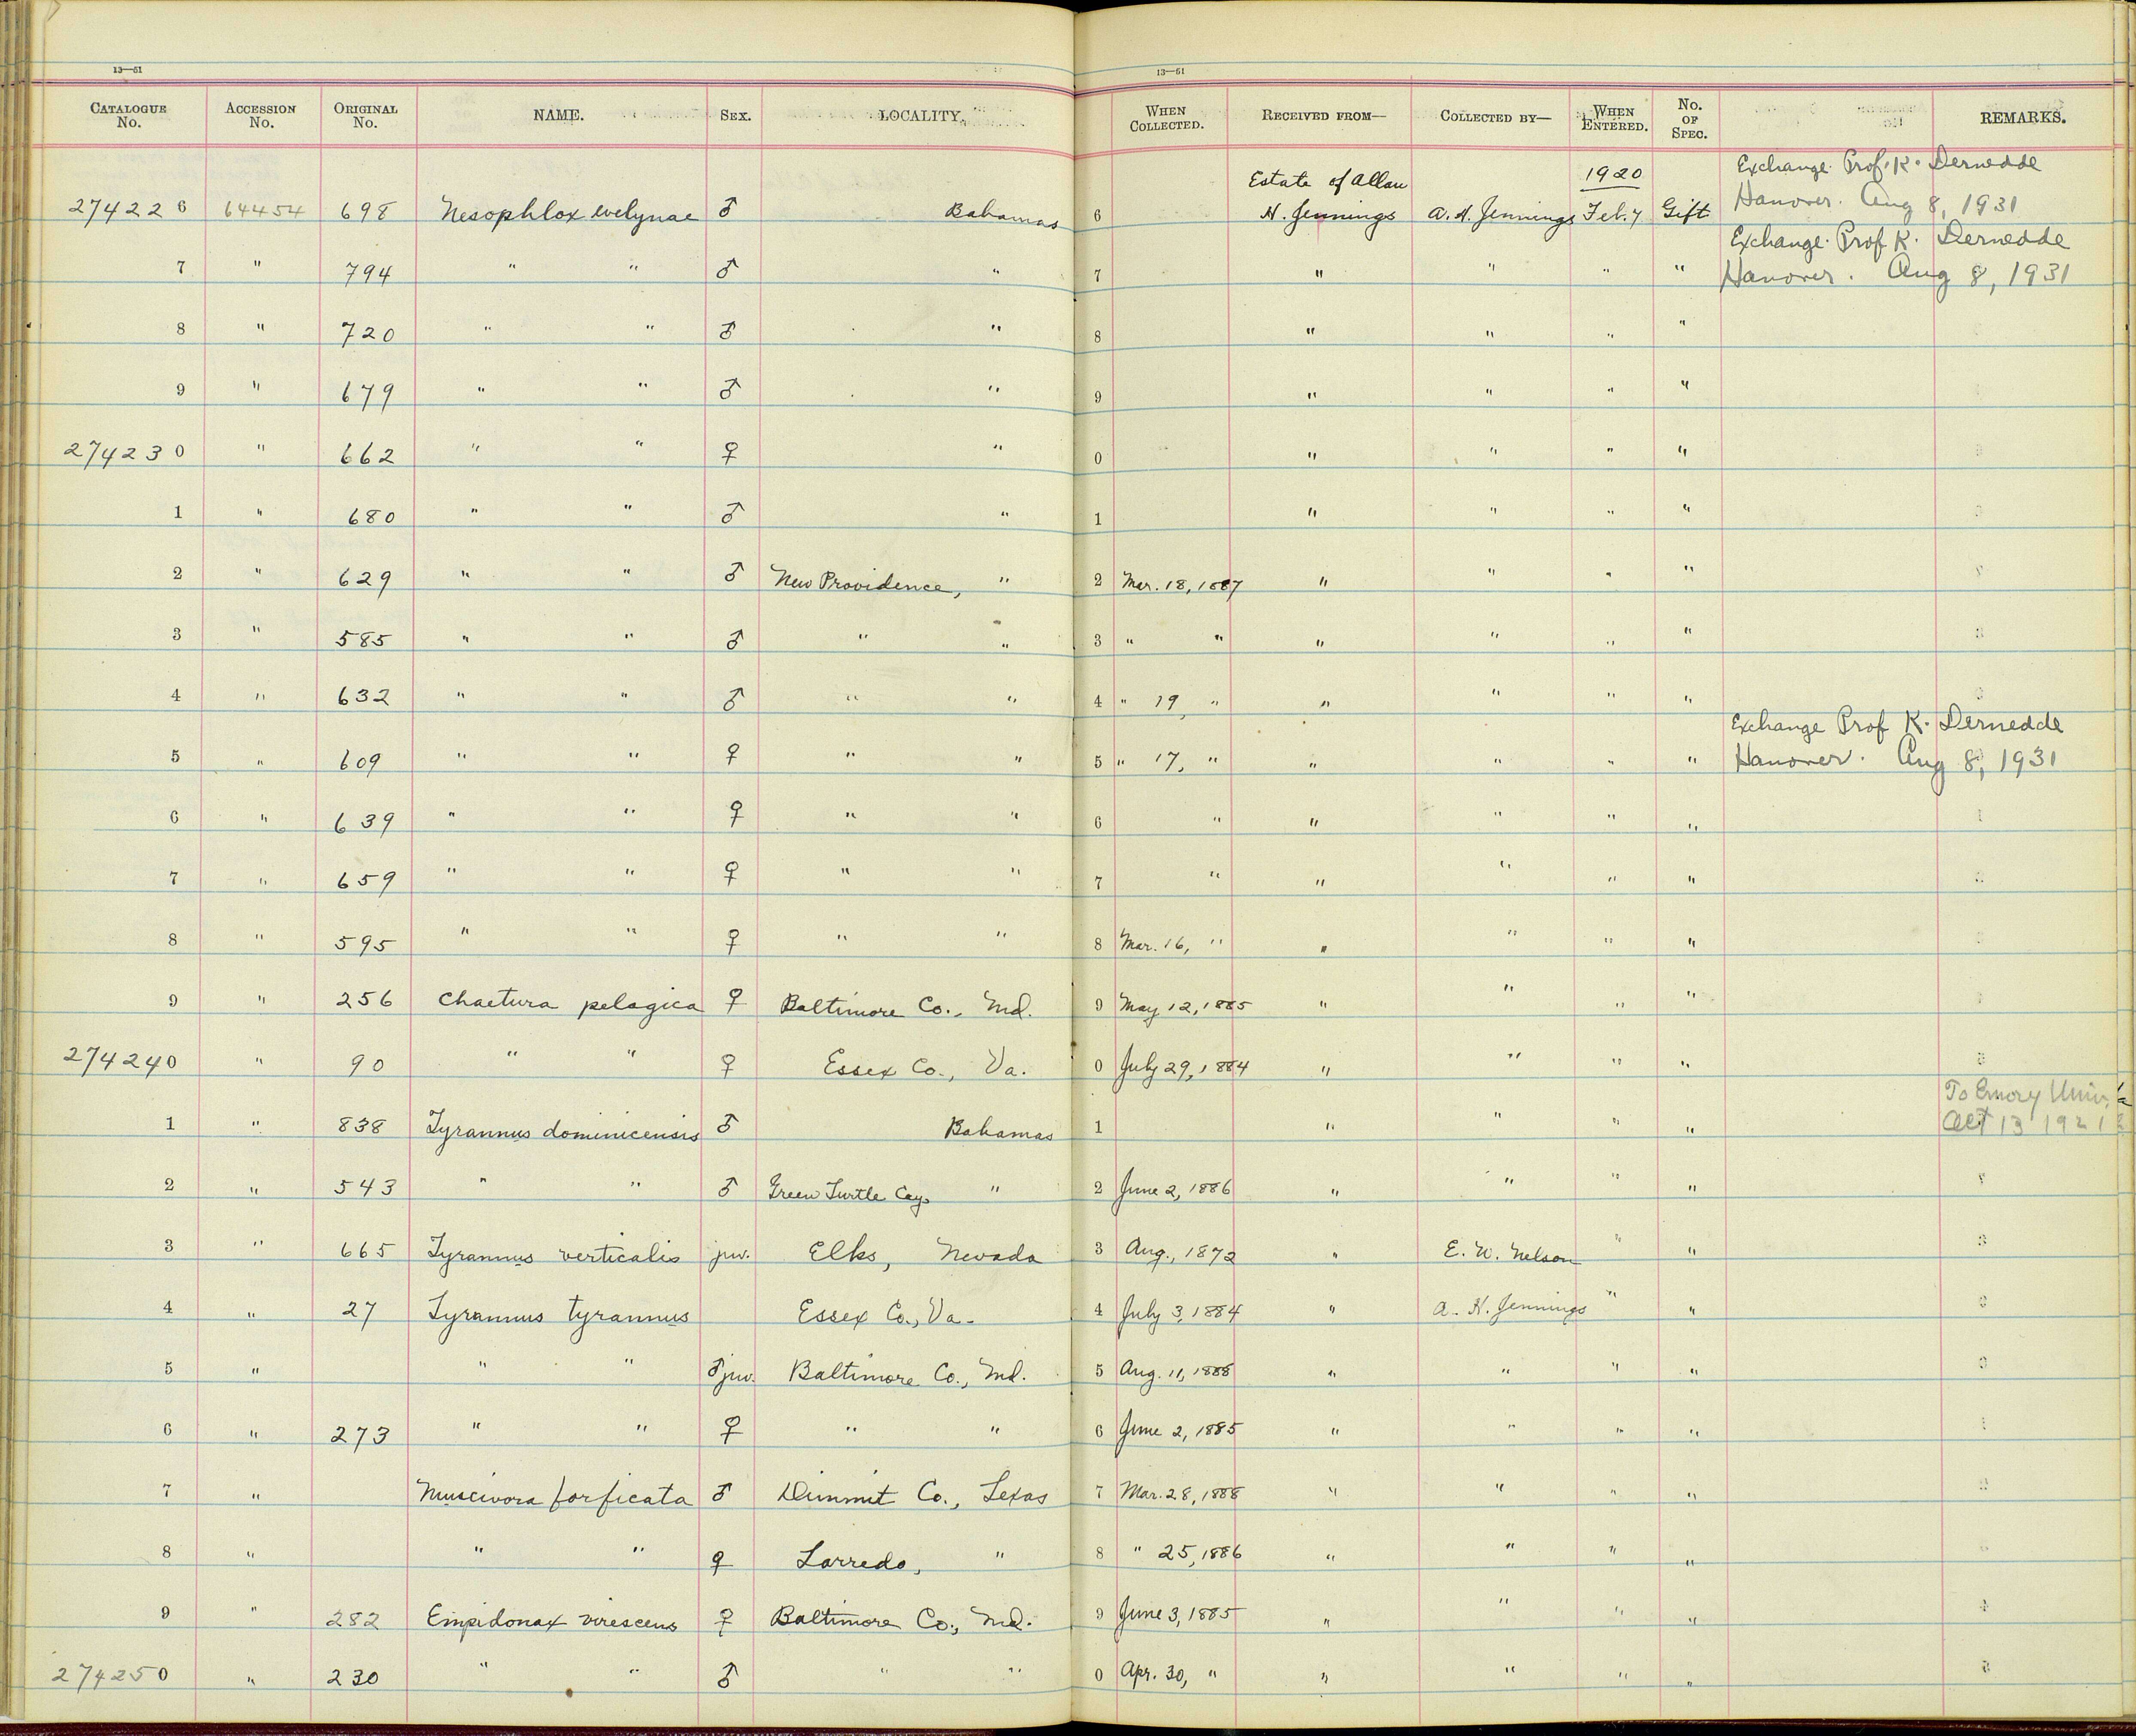 13—51 13—51
CATALOGUE No. ACCESSION No. ORIGINAL No. NAME. SEX. LOCALITY. WHEN COLLECTED. RECEIVED FROM— COLLECTED BY— WHEN ENTERED. No. OF SPEC. REMARKS.
Estate of Allan 1920 Exchange. Prof. K. Dernedde
274226 64454 698 Nesophlox evelynae ♂ Bahamas 6 H. Jennings A. H. Jennings Feb. 7 Gift Hanover. Aug 8, 1931
Exchange. Prof K. Dernedde
7 " 794 " " ♂ " 7 " " " " Hanover. Aug 8, 1931
8 " 720 " " ♂ " 8 " " " "
9 " 679 " " ♂ " 9 " " " "
274230 " 662 " " ♀ " 0 " " " "
1 " 680 " " ♂ " 1 " " " "
2 " 629 " " ♂ New Providence, " 2 Mar. 18, 1887 " " " "
3 " 585 " " ♂ " " 3 " " " " " "
4 " 632 " " ♂ " " 4 " 19, " " " " "
Exchange Prof K. Dernedde
5 " 609 " " ♀ " " 5 " 17, " " " " " Hanover. Aug 8, 1931
6 " 639 " " ♀ " " 6 " " " " "
7 " 659 " " ♀ " " 7 " " " " "
8 " 595 " " ♀ " " 8 Mar. 16, " " " " "
9 " 256 Chaetura pelagica ♀ Baltimore Co., Md. 9 May 12, 1885 " " " "
274240 " 90 " " ♀ Essex Co., Va. 0 July 29, 1884 " " " "
To Emory Univ.
1 " 838 Tyrannus dominicensis ♂ Bahamas 1 " " " " Oct 13 1921
2 " 543 " " ♂ Green Turtle Cay, " 2 June 2, 1886 " " " "
3 " 665 Tyrannus verticalis juv. Elko, Nevada 3 Aug., 1872 " E. W. Nelson " "
4 " 27 Tyrannus tyrannus Essex Co., Va. 4 July 3, 1884 " A. H. Jennings " "
5 " " " ♂ juv. Baltimore Co., Md. 5 Aug. 11, 1888 " " " "
6 " 273 " " ♀ " " 6 June 2, 1885 " " " "
7 " Muscivora forficata ♂ Dimmit Co., Texas 7 Mar. 28, 1888 " " " "
8 " " " ♀ Larredo, " 8 " 25, 1886 " " " "
9 " 282 Empidonax virescens ♀ Baltimore Co., Md. 9 June 3, 1885 " " " "
274250 " 230 " " ♂ " " 0 Apr. 30, " " " " "